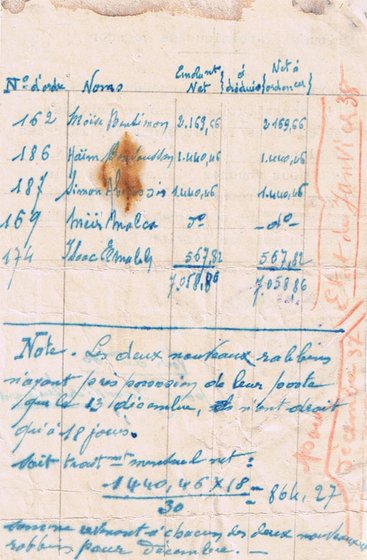 N° d'ordre Noms Emolument Net à déduire Net à ordonner
162 Moïse Bentimon 2.169,66 2169,66
186 Haïm 1.440,46 1.440,46
187 Simon 1.440,46 1.440,46
169 Meïr Amalca d° d°
174 Isaac 567,82 567,82
7.058,86 7.058,86
Etat de Janvier 38
pour Décembre 37
Note. Les deux nouveaux rabbins
n'ayant pris possession de leur poste
que le 13 décembre, ils n'ont droit
qu'à 18 jours.
Soit trait mt mensuel net :
1440,46 x 18 = 864,27
30
somme revenant à chacun des deux nouveaux
rabbins pour décembre. —